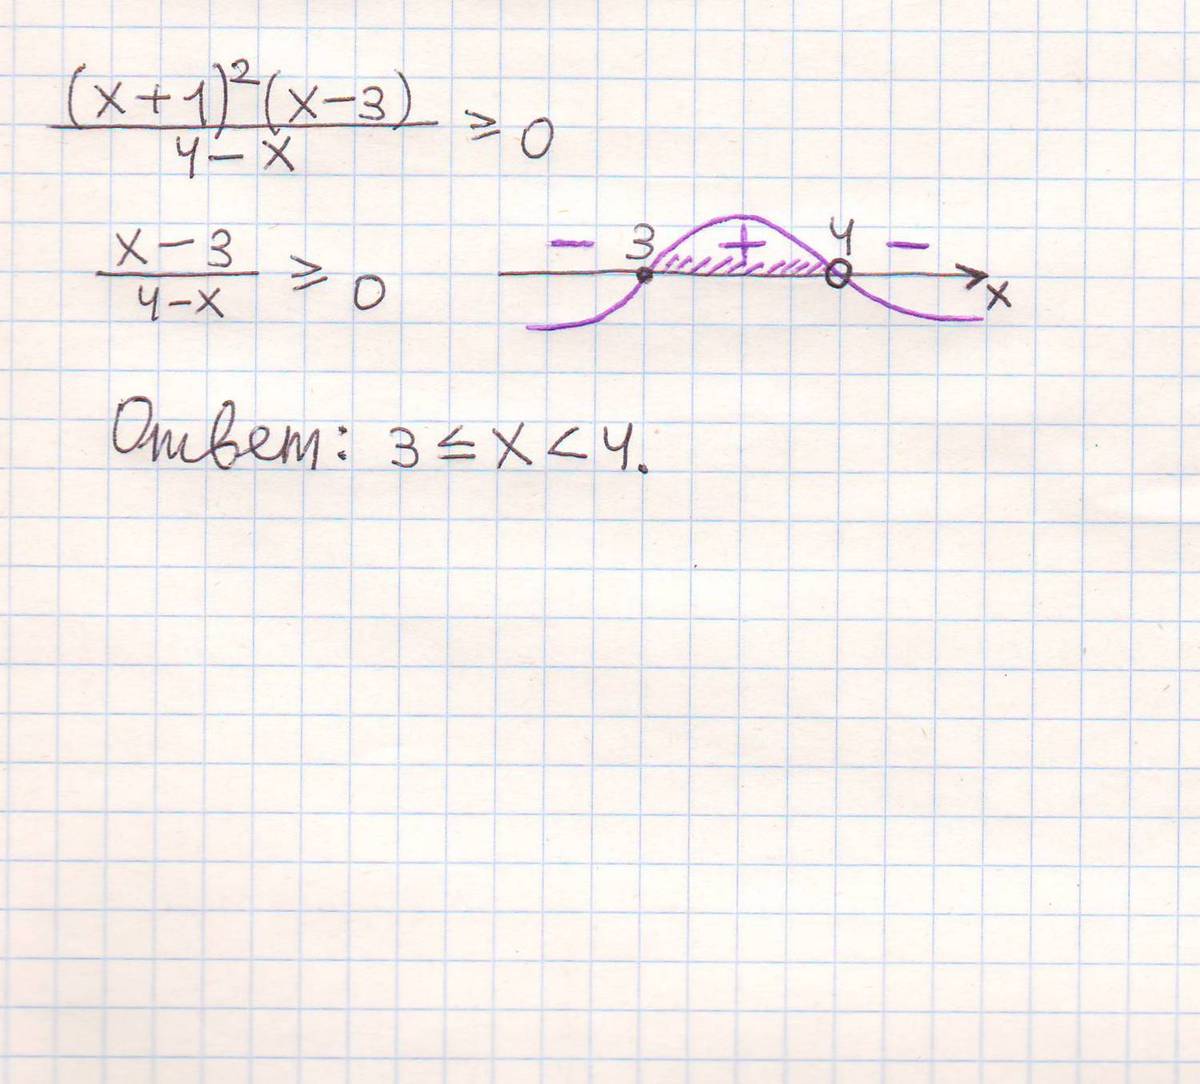 (x+1)²(x-3)
4-x
≥ 0
x-3
4-x
≥ 0
- 3 + 4 -
x
Ответ: 3 ≤ x < 4.